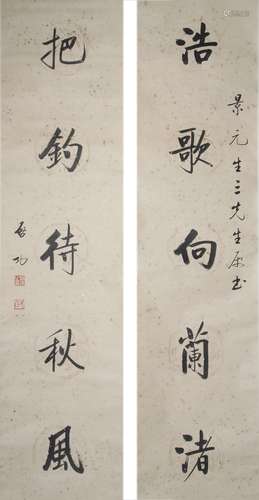 浩歌向蘭渚
景元生三先生屬書
把鈎待秋風
啓功